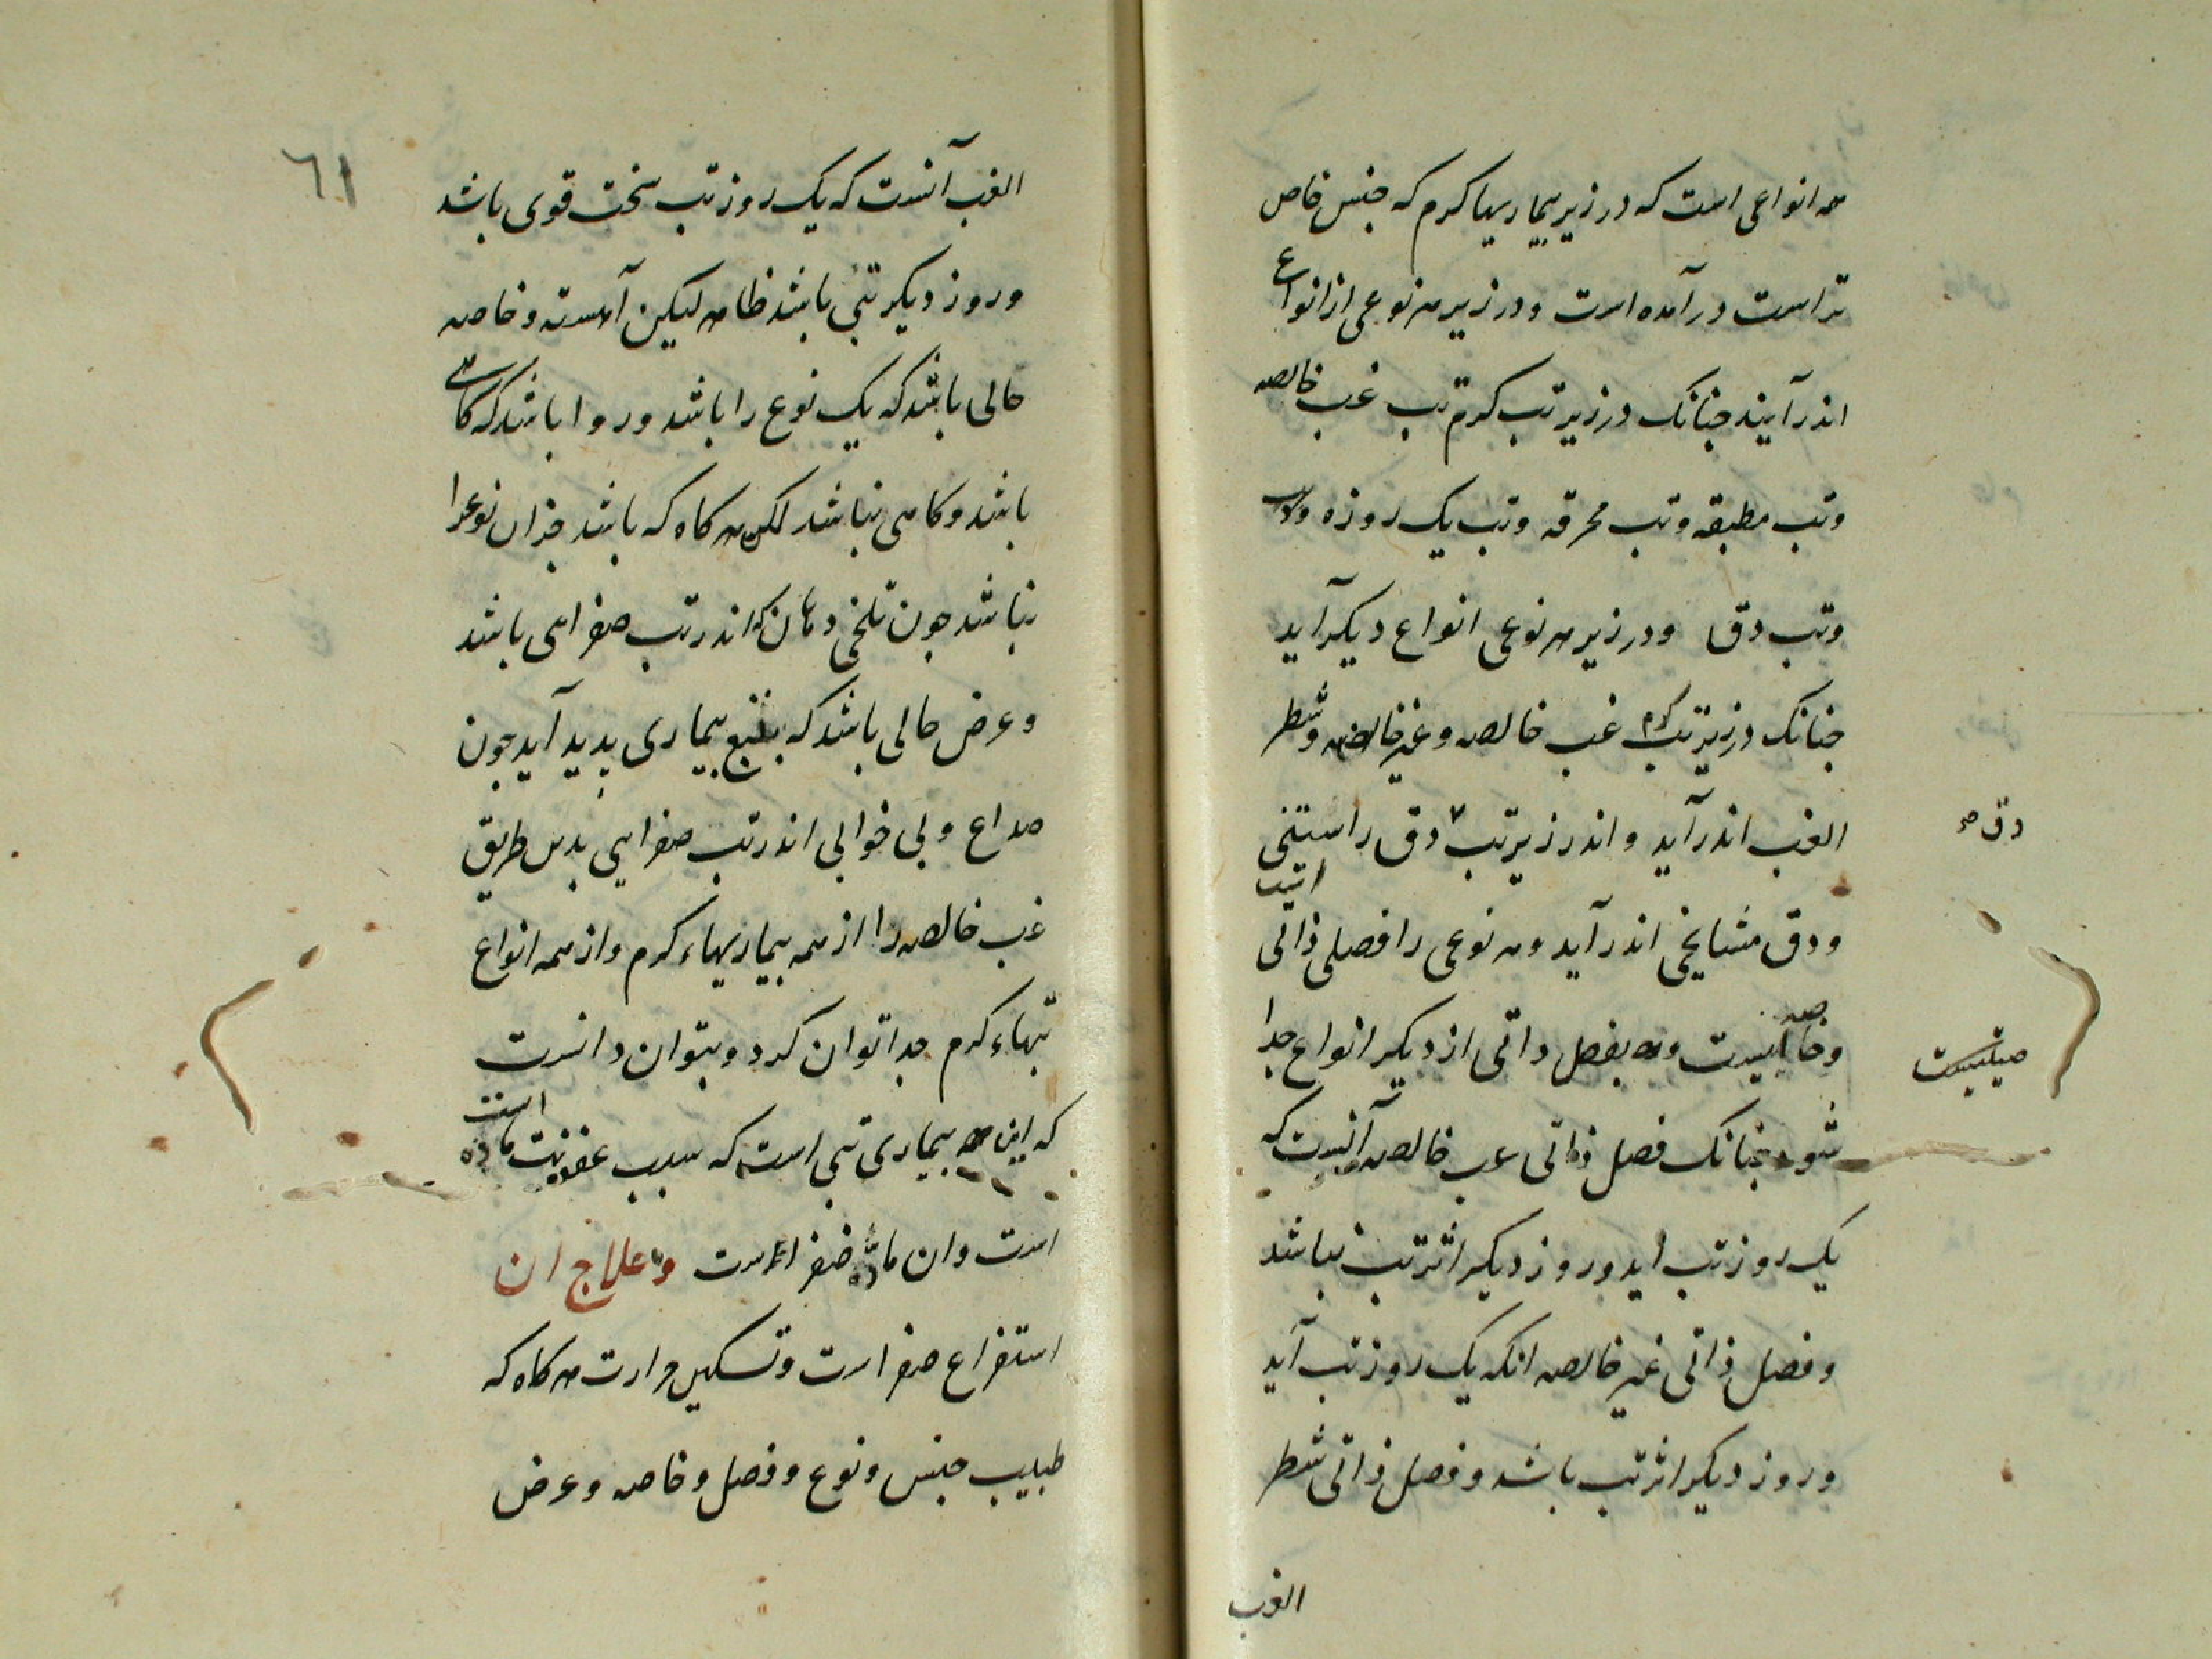 همه انواعی است که در زیر بیماریها کرم که جنس خاص
تر است درآمده است و در زیر هر نوعی از انواع
اندرآیند جنانک در زیر تب کرم تب غب خالصه
وتب مطبقه وتب محرقه وتب یک روزه
وتب دق ودر زیر هر نوعی انواع دیکر آید
جنانک در زیر تب کرم غب خالصه وغیر خالصه وشطر
الغب اندرآید واندر زیر تب دق راستینی
دق صح
ودق مشایخی اندرآید وهر نوعی را فصلی ذاتی است
وخاصیتیست وبفصل ذاتی از دیکر انواع جدا
صیتیست
شود جنانک فصل ذاتی غب خالصه آنست که
یک روز تب اید وروز دیکر اثر تب نباشد
وفصل ذاتی غیر خالصه انکه یک روز تب آید
وروز دیکر اثر تب باشد وفصل ذاتی شطر
الغب
٦١
الغب آنست که یک روز تب سخت قوی باشد
وروز دیکر تبی باشد ظاهر لیکن آهسته وخاصه
حالی باشد که یک نوع را باشد وروا باشد که کاهی
باشد وکاهی نباشد لکن هر کاه که باشد جز ان نوع را
نباشد جون تلخی دهان که اندر تب صفرایی باشد
وعرض حالی باشد که بتبع بیماری پدید آید جون
صداع وبی خوابی اندر تب صفرایی بدین طریق
غب خالصه را از همه بیماریهاء کرم واز همه انواع
تبهاء کرم جدا توان کرد وبتوان دانست
که این بیماری تبی است که سبب عفونت ماده است
است وان ماده صفرا است وعلاج ان
استفراغ صفراست وتسکین حرارت هر کاه که
طبیب جنس ونوع وفصل وخاصه وعرض